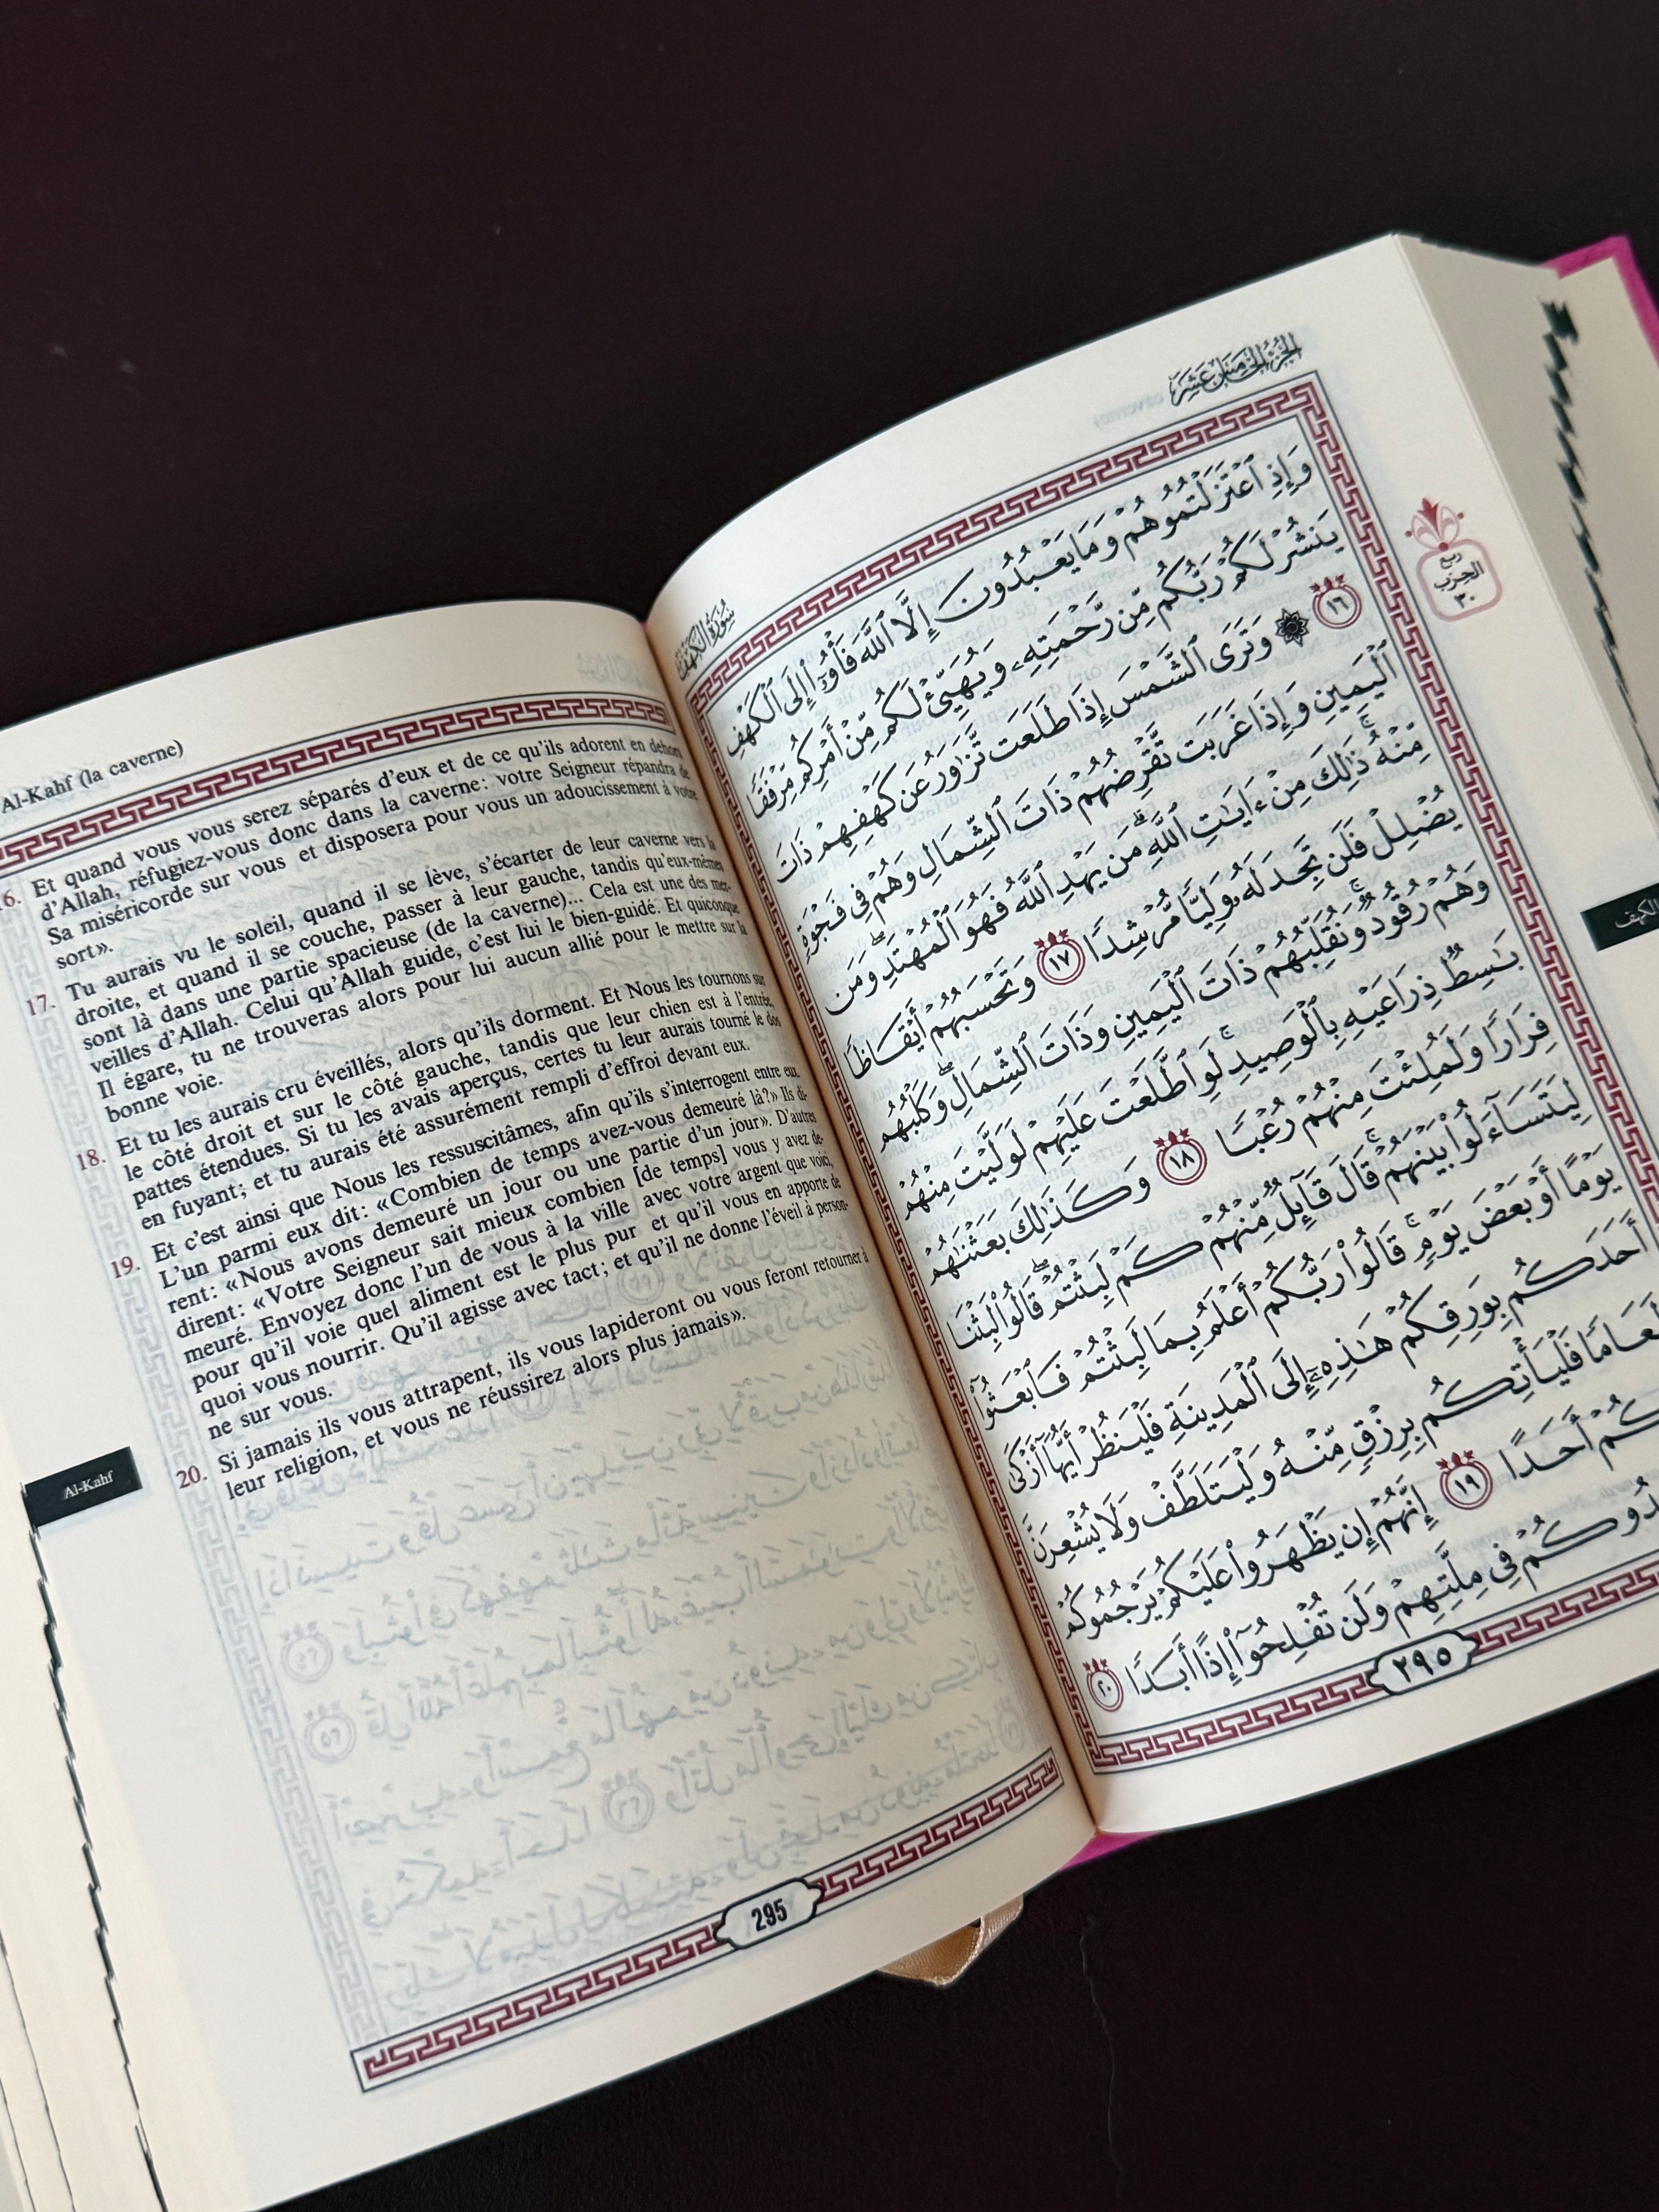 Al-Kahf (la caverne)
16. Et quand vous vous serez séparés d'eux et de ce qu'ils adorent en dehors
d'Allah, réfugiez-vous donc dans la caverne: votre Seigneur répandra de
Sa miséricorde sur vous et disposera pour vous un adoucissement à votre
sort».
17. Tu aurais vu le soleil, quand il se lève, s'écarter de leur caverne vers la
droite, et quand il se couche, passer à leur gauche, tandis qu'eux-mêmes
sont là dans une partie spacieuse (de la caverne)... Cela est une des mer-
veilles d'Allah. Celui qu'Allah guide, c'est lui le bien-guidé. Et quiconque
Il égare, tu ne trouveras alors pour lui aucun allié pour le mettre sur la
bonne voie.
18. Et tu les aurais cru éveillés, alors qu'ils dorment. Et Nous les tournons sur
le côté droit et sur le côté gauche, tandis que leur chien est à l'entrée,
pattes étendues. Si tu les avais aperçus, certes tu leur aurais tourné le dos
en fuyant; et tu aurais été assurément rempli d'effroi devant eux.
19. Et c'est ainsi que Nous les ressuscitâmes, afin qu'ils s'interrogent entre eux.
L'un parmi eux dit: «Combien de temps avez-vous demeuré là?» Ils di-
rent: «Nous avons demeuré un jour ou une partie d'un jour». D'autres
dirent: «Votre Seigneur sait mieux combien [de temps] vous y avez de-
meuré. Envoyez donc l'un de vous à la ville avec votre argent que voici,
pour qu'il voie quel aliment est le plus pur et qu'il vous en apporte de
quoi vous nourrir. Qu'il agisse avec tact; et qu'il ne donne l'éveil à person-
ne sur vous.
20. Si jamais ils vous attrapent, ils vous lapideront ou vous feront retourner à
leur religion, et vous ne réussirez alors plus jamais».
Al-Kahf
295
الجزء الخامس عشر
سورة الكهف
وَإِذِ ٱعْتَزَلْتُمُوهُمْ وَمَا يَعْبُدُونَ إِلَّا ٱللَّهَ فَأْوُۥٓا۟ إِلَى ٱلْكَهْفِ
يَنشُرْ لَكُمْ رَبُّكُم مِّن رَّحْمَتِهِۦ وَيُهَيِّئْ لَكُم مِّنْ أَمْرِكُم مِّرْفَقًا
١٦ ۞ وَتَرَى ٱلشَّمْسَ إِذَا طَلَعَت تَّزَٰوَرُ عَن كَهْفِهِمْ ذَاتَ
ٱلْيَمِينِ وَإِذَا غَرَبَت تَّقْرِضُهُمْ ذَاتَ ٱلشِّمَالِ وَهُمْ فِى فَجْوَةٍ
مِّنْهُ ۚ ذَٰلِكَ مِنْ ءَايَٰتِ ٱللَّهِ ۗ مَن يَهْدِ ٱللَّهُ فَهُوَ ٱلْمُهْتَدِ ۖ وَمَن
يُضْلِلْ فَلَن تَجِدَ لَهُۥ وَلِيًّا مُّرْشِدًا ١٧ وَتَحْسَبُهُمْ أَيْقَاظًا
وَهُمْ رُقُودٌ ۚ وَنُقَلِّبُهُمْ ذَاتَ ٱلْيَمِينِ وَذَاتَ ٱلشِّمَالِ ۖ وَكَلْبُهُم
بَٰسِطٌ ذِرَاعَيْهِ بِٱلْوَصِيدِ ۚ لَوِ ٱطَّلَعْتَ عَلَيْهِمْ لَوَلَّيْتَ مِنْهُمْ
فِرَارًا وَلَمُلِئْتَ مِنْهُمْ رُعْبًا ١٨ وَكَذَٰلِكَ بَعَثْنَٰهُمْ
لِيَتَسَآءَلُوا۟ بَيْنَهُمْ ۚ قَالَ قَآئِلٌ مِّنْهُمْ كَمْ لَبِثْتُمْ ۖ قَالُوا۟ لَبِثْنَا
يَوْمًا أَوْ بَعْضَ يَوْمٍ ۚ قَالُوا۟ رَبُّكُمْ أَعْلَمُ بِمَا لَبِثْتُمْ فَٱبْعَثُوٓا۟
أَحَدَكُم بِوَرِقِكُمْ هَٰذِهِۦٓ إِلَى ٱلْمَدِينَةِ فَلْيَنظُرْ أَيُّهَآ أَزْكَىٰ
طَعَامًا فَلْيَأْتِكُم بِرِزْقٍ مِّنْهُ وَلْيَتَلَطَّفْ وَلَا يُشْعِرَنَّ
كُمْ أَحَدًا ١٩ إِنَّهُمْ إِن يَظْهَرُوا۟ عَلَيْكُمْ يَرْجُمُوكُمْ
دُوكُمْ فِى مِلَّتِهِمْ وَلَن تُفْلِحُوٓا۟ إِذًا أَبَدًا ٢٠
٢٩٥
ربع
الحزب
٣٠
الكهف